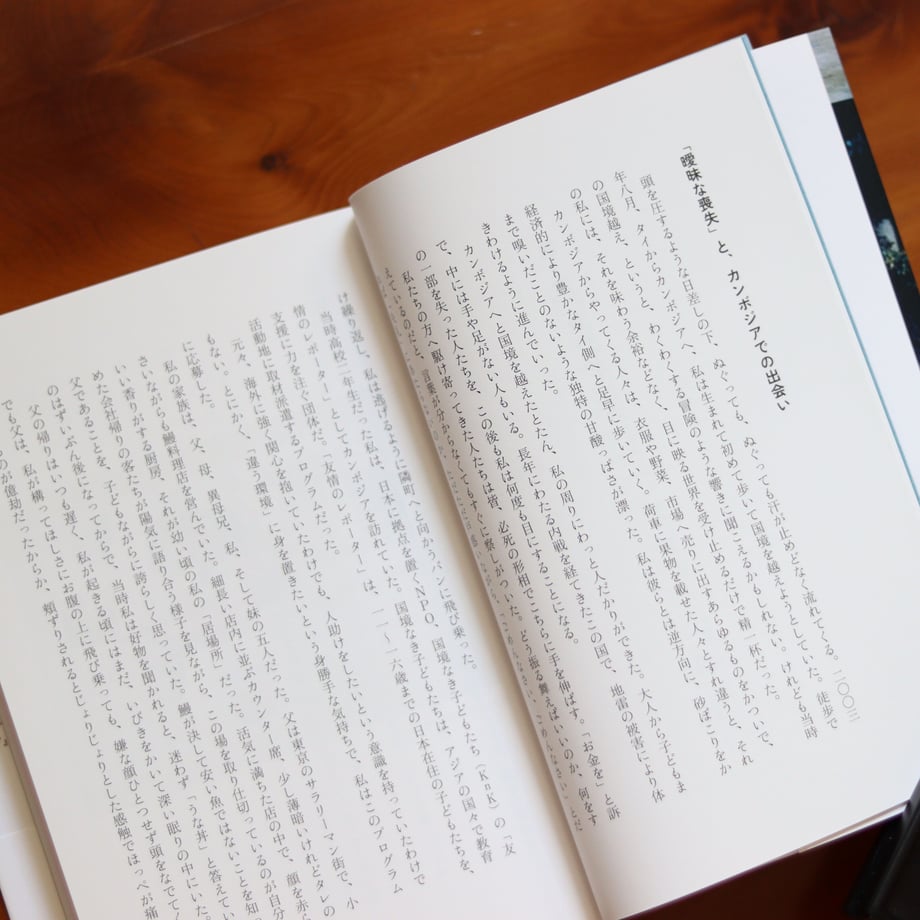 「曖昧な喪失」と、カンボジアでの出会い
頭を圧するような日差しの下、ぬぐっても、ぬぐっても汗が止めどなく流れてくる。二〇〇三
年八月、タイからカンボジアへ、私は生まれて初めて歩いて国境を越えようとしていた。徒歩で
の国境越え、というと、わくわくする冒険のような響きに聞こえるかもしれない。けれども当時
の私には、それを味わう余裕などなく、目に映る世界を受け止めるだけで精一杯だった。
カンボジアからやってくる人々は、衣服や野菜、市場へ売りに出すあらゆるものをかついで、それ
経済的により豊かなタイ側へと足早に歩いていく。荷車に果物を載せた人々とすれ違うと、
まで嗅いだことのないような独特の甘酸っぱさが漂った。私は彼らとは逆方向に、砂ぼこりをか
きわけるように進んでいった。
カンボジアへと国境を越えたとたん、私の周りにわっと人だかりができた。大人から子どもま
で、中には手や足がない人もいる。長年にわたる内戦を経てきたこの国で、地雷の被害により体
の一部を失った人たちを、この後も私は何度も目にすることになる。
私たちの方へ駆け寄ってきた人たちは皆、必死の形相でこちらに手を伸ばす。「お金を」と訴
えているのだと、言葉が分からなくてもすぐに察しがついた。どう振る舞えばいいのか、何をす
け繰り返し、私は逃げるように隣町へと向かうバンに飛び乗った。
当時高校二年生だった私は、日本に拠点を置くNPO、国境なき子どもたち（KnK）の「友
情のレポーター」としてカンボジアを訪れていた。国境なき子どもたちは、アジアの国々で教育
支援に力を注ぐ団体だ。「友情のレポーター」は、一一〜一六歳までの日本在住の子どもたちを、
活動地に取材派遣するプログラムだった。
元々、海外に強い関心を抱いていたわけでも、人助けをしたいという意識を持っていたわけで
もない。とにかく、「違う環境」に身を置きたいという身勝手な気持ちで、私はこのプログラム
に応募した。
私の家族は、父、母、異母兄、私、そして妹の五人だった。父は東京のサラリーマン街で、小
さいながらも鰻料理店を営んでいた。細長い店内に並ぶカウンター席、少し薄暗いけれどタレの
いい香りがする厨房、それが幼い頃の私の「居場所」だった。活気に満ちた店の中で、顔を赤ら
めた会社帰りの客たちが陽気に語り合う様子を見ながら、この場を取り仕切っているのが自分
父であることを、子どもながらに誇らしく思っていた。鰻が決して安い魚ではないことを知
のはずいぶん後になってからで、当時私は好物を聞かれると、迷わず「うな丼」と答えてい
父の帰りはいつも遅く、私が起きる頃にはまだ、いびきをかいて深い眠りの中にいた。
でも父は、私が構ってほしさにお腹の上に飛び乗っても、嫌な顔ひとつせず頭をなでてく
のが億劫だったからか、頬ずりされるとじょりじょりとした感触でほっぺが痛